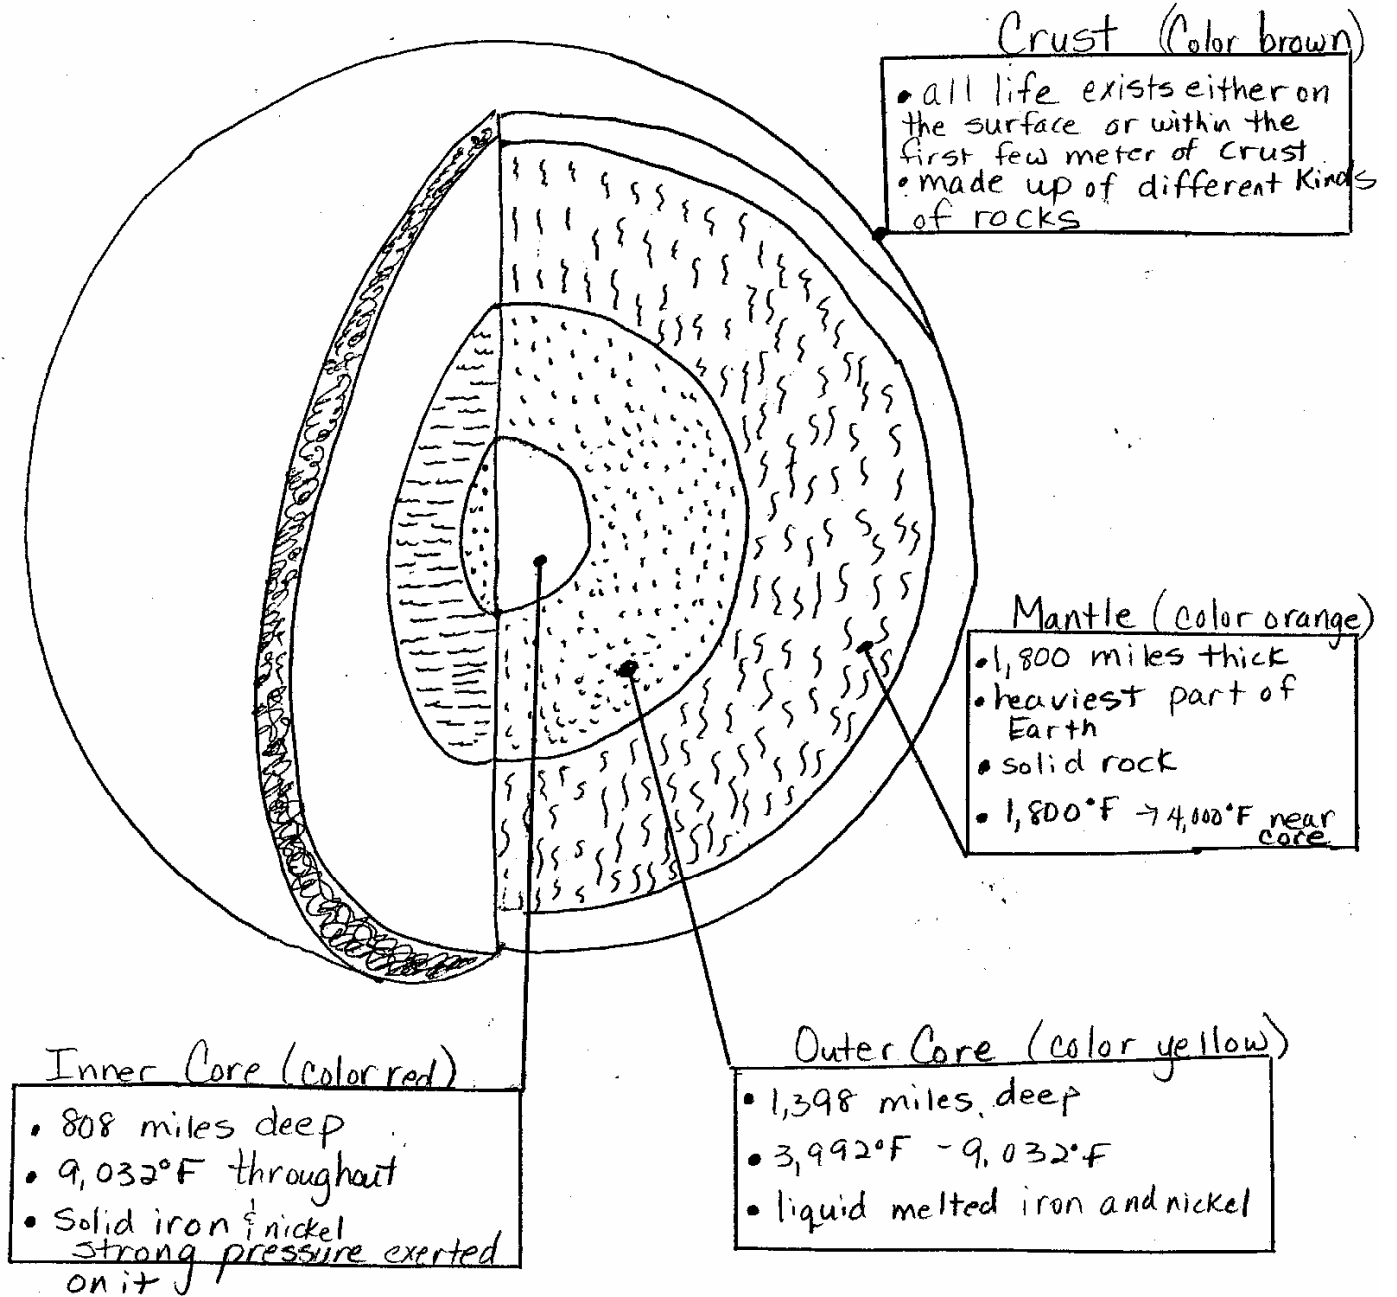 Crust (Color brown)
• all life exists either on
the surface or within the
first few meter of crust
• made up of different kinds
of rocks
Mantle (color orange)
• 1,800 miles thick
• heaviest part of
Earth
• solid rock
• 1,800°F → 4,000°F near
core
Inner Core (color red)
• 808 miles deep
• 9,032°F throughout
• Solid iron & nickel
strong pressure exerted
on it
Outer Core (color yellow)
• 1,398 miles deep
• 3,992°F - 9,032°F
• liquid melted iron and nickel